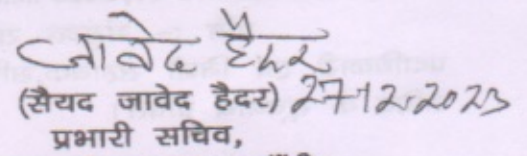 जावेद हैदर
(सैयद जावेद हैदर) 27.12.2023
प्रभारी सचिव,